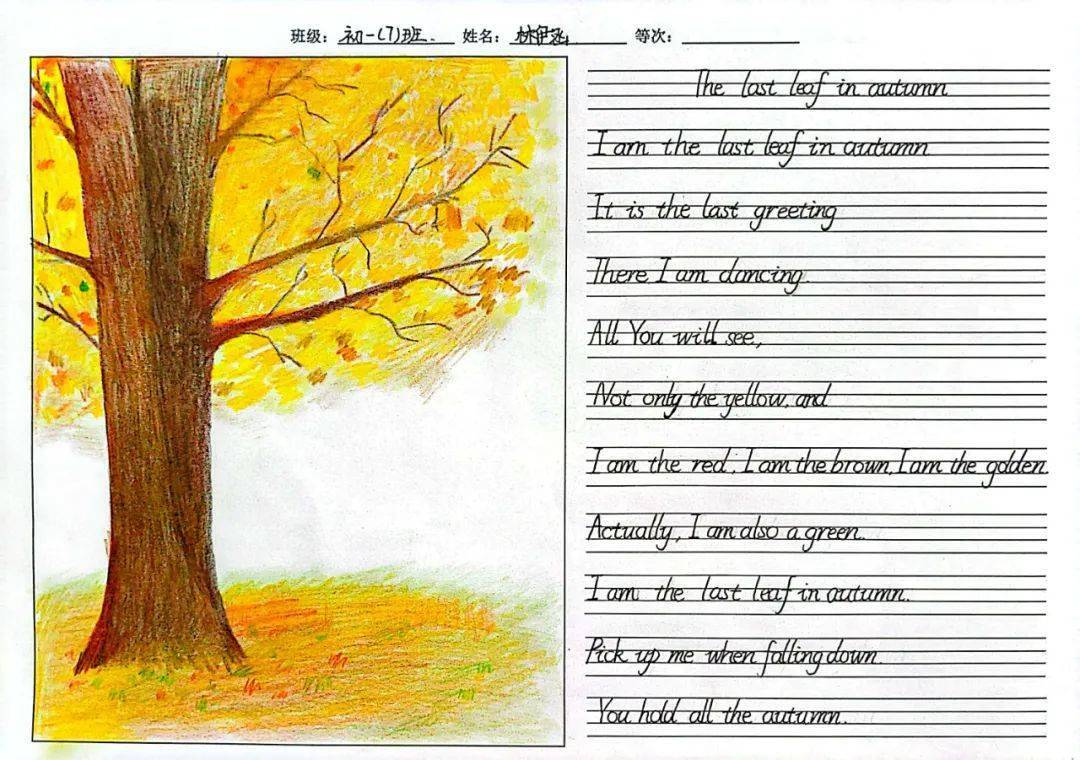 班级: 初一(7)班. 姓名: 林伊涵 等次:
The last leaf in autumn
I am the last leaf in autumn
It is the last greeting
There, I am dancing.
All You will see,
Not only the yellow, and
I am the red, I am the brown, I am the golden.
Actually, I am also a green.
I am the last leaf in autumn.
Pick up me when falling down.
You hold all the autumn.